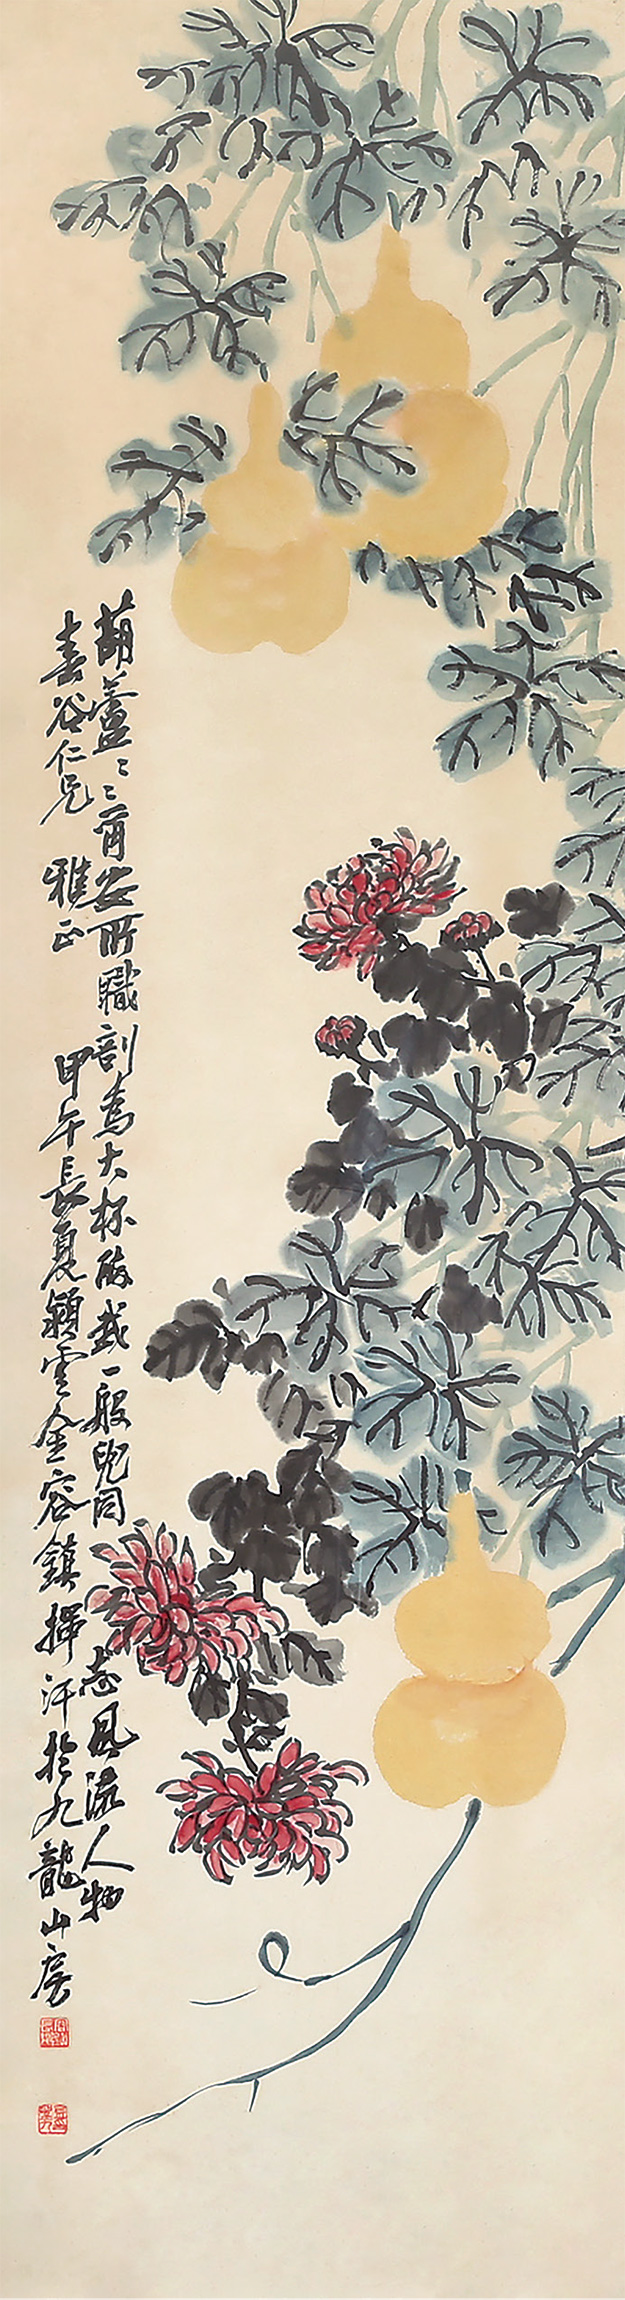 葫蘆葫蘆爾安所職剖為大杯酸或一般兜同志風流人物
春谷仁兄 雅正 甲午長夏穎雲金容鎮揮汗於九龍山房